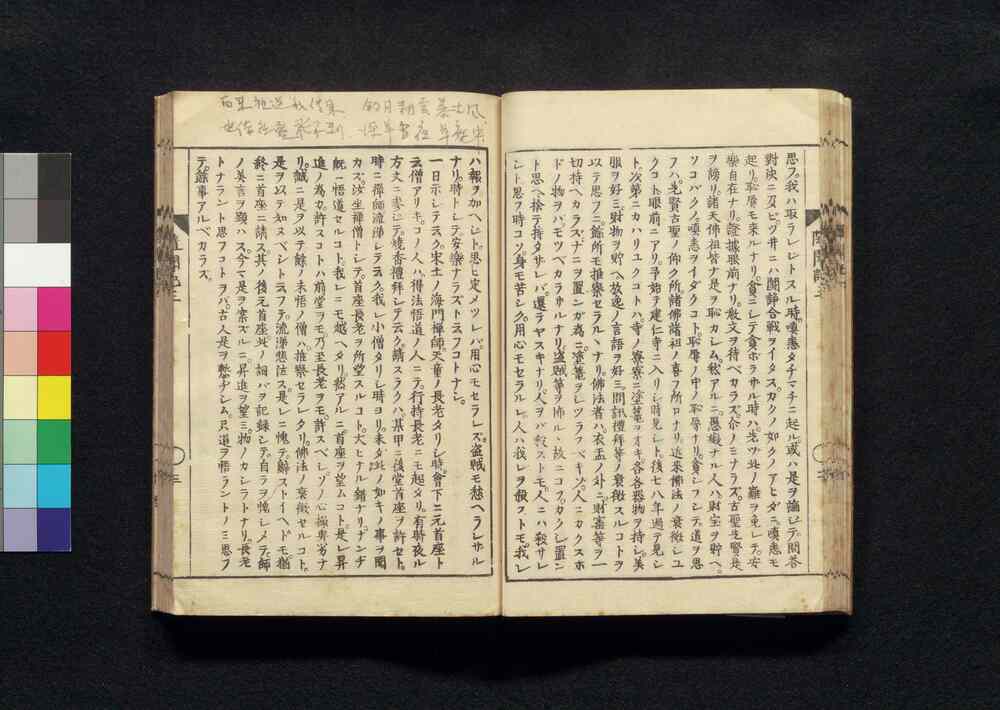 思フ。我ハ取ラレトスル時。嗔恚タチマチニ起ル。或ハ是ヲ論シテ。問答
對決ニ及ビ。ツ井ニハ闘諍合戰ヲイタス。カクノ如クノアヒダニ。嗔恚モ
起リ。恥辱モ來ルナリ。貧ニシテ貪ホラザル時ハ。先ヅ此ノ難ヲ免レテ。安
樂自在ナリ。證據眼前ナリ。教文ヲ待ベカラズ。介ノミナラズ。古聖先賢是
ヲ謗リ。諸天佛祖皆ナ是ヲ恥カシム。然アルニ愚癡ナル人ハ。財宝ヲ貯ヘ。
ソコバクノ嗔恚ヲイダクコト。恥辱ノ中ノ恥辱ナリ。貧フシテ道ヲ思
フハ。先賢古聖ノ仰ク所。諸佛諸祖ノ喜フ所ロナリ。近來佛法ノ衰微シユ
クコト眼前ニアリ。予始テ建仁寺ニ入リシ時見シト。後七八年過テ見シ
ト。次第ニカハリユクコトハ。寺ノ寮寮ニ塗篭ヲオキ。各各器物ヲ持シ。美
服ヲ好ミ。財物ヲ貯ヘ。放逸ノ言語ヲ好ミ。問訊禮拜等ノ衰微スルコトヲ
以テ思フニ。餘所モ推察セラルヽナリ。佛法者ハ。衣盂ノ外ニ。財寳等ヲ一
切持ヘカラズ。ナニヲ置ンガ為ニ。塗篭ヲシツラフベキソ。人ニカクスホ
ドノ物ヲバモツベカラザルナリ。盗賊等ヲ怖ルヽ故ニコソ。カクシ置ン
ト思ヘ。捨テ持タサレバ。還テヤスキナリ。人ヲバ殺ストモ。人ニハ殺サレ
シト思フ時コソ。身モ苦シク。用心モセラルレ。人ハ我レヲ殺ストモ。我レ
ハ報ヲ加ヘシト。思ヒ定メツレバ。用心モセラレズ。盗賊モ愁ヘラレザル
ナリ。時トシテ。安樂ナラズト云フコトナシ。
一日示シテ云ク。宋土ノ海門禪師。天童ノ長老タリシ時。會下ニ元首座ト
云僧アリキ。コノ人ハ。得法悟道ノ人ニテ。行持長老ニモ起タリ。有時夜ル
方丈ニ参シテ。燒香禮拜シテ云ク。請スラクハ。某甲ニ後堂首座ヲ許セト。
時ニ禪師流涕シテ云ク。我レ小僧タリシ時ヨリ。未ダ此ノ如キノ事ヲ聞
カズ。汝坐禪僧トシテ。首座長老ヲ所望スルコト。大ヒナル錯ナリ。ナンヂ
既ニ悟道セルコト。我レニモ越ヘタリ。然アルニ首座ヲ望ムコト。是レ昇
進ノ為カ。許スコトハ前堂ヲモ。乃至長老ヲモ。許スベシ。ソノ心操卑劣ナ
リ。誠ニ是ヲ以テ餘ノ未悟ノ僧ハ。推察セラレタリ。佛法ノ衰微セルコト。
是ヲ以テ知ヌベシト云フテ。流涕悲泣ス。是レニ愧テ。辭ストイヘドモ。猶
終ニ首座ニ請ス。其ノ後元首座此ノ詞バヲ記録シテ。自ラヲ愧シメテ。師
ノ美言ヲ顯ハス。今マ是ヲ案ズルニ。昇進ヲ望ミ。物ノカシラトナリ。長老
トナラント思フコトヲバ。古人是ヲ慙ヂシム。只道ヲ悟ラントノミ思フ
テ。餘事アルベカラズ。